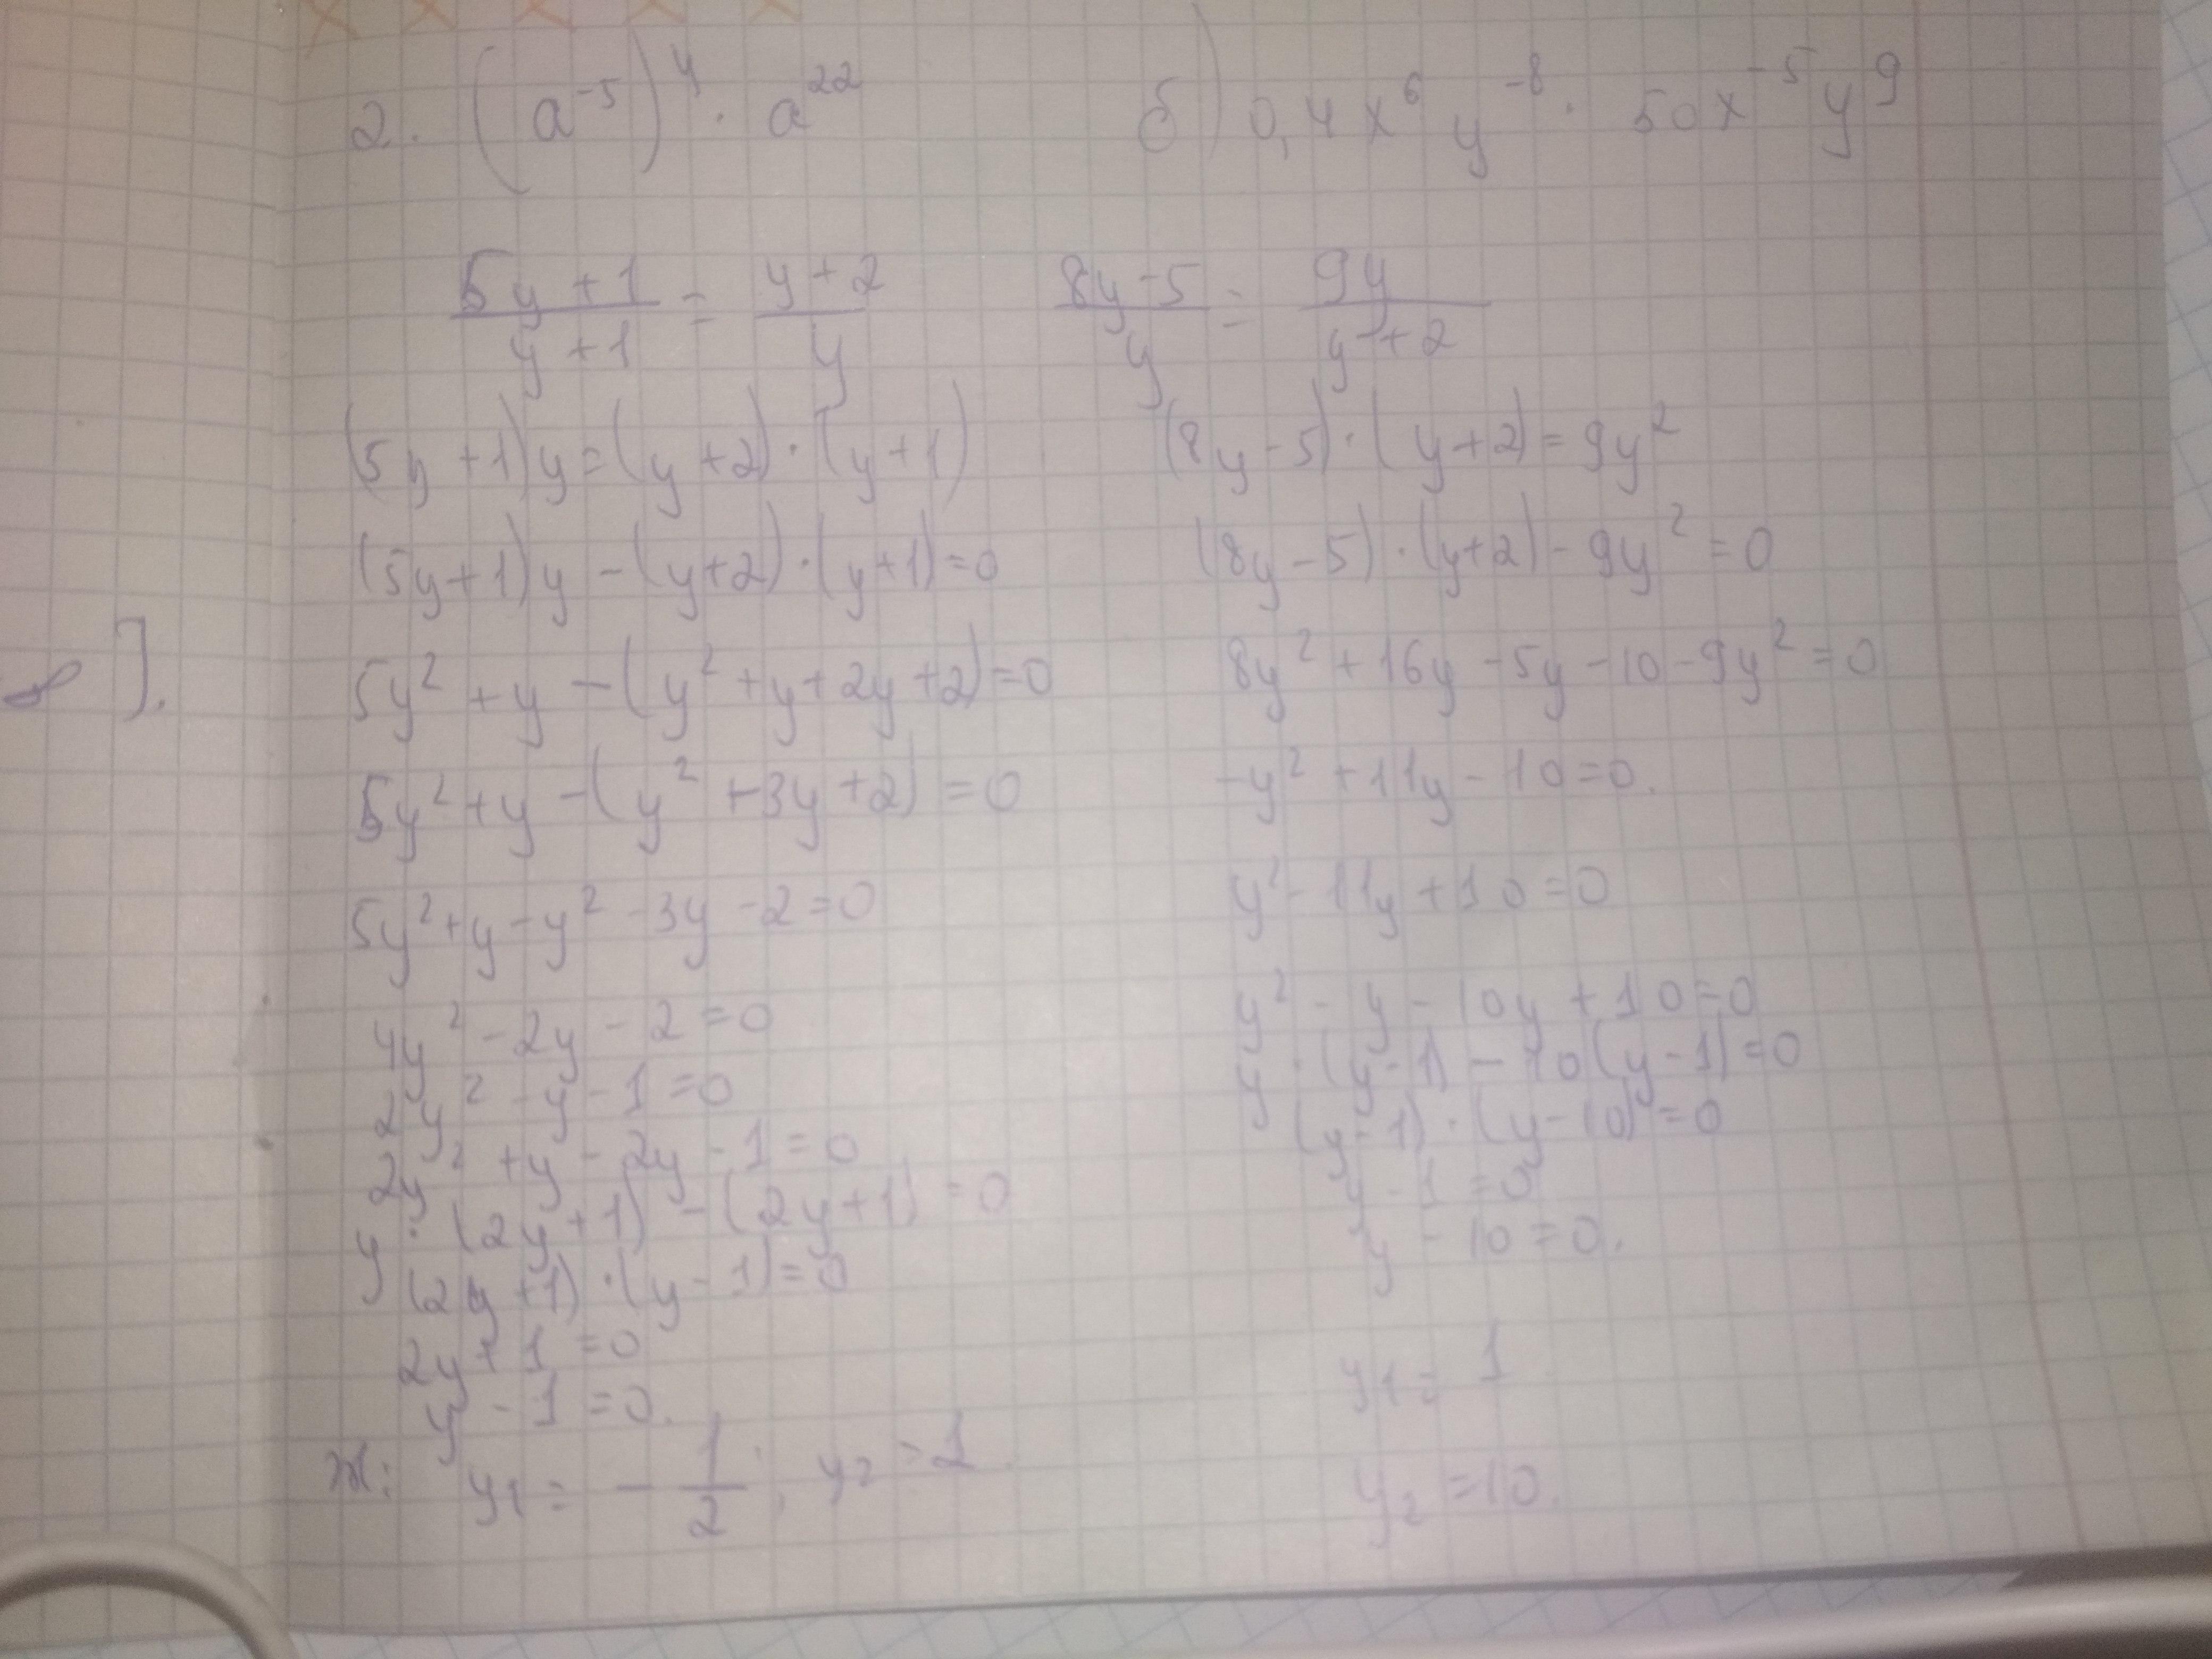 2. (a⁻⁵)⁴ · a²²
б) 0,4x⁶y⁻⁸ · 50x⁻⁵y⁹
(5y+1)/(y+1) = (y+2)/y
(5y+1)y=(y+2)·(y+1)
(5y+1)y-(y+2)·(y+1)=0
5y²+y-(y²+y+2y+2)=0
5y²+y-(y²+3y+2)=0
5y²+y-y²-3y-2=0
4y²-2y-2=0
2y²-y-1=0
2y²+y-2y-1=0
y·(2y+1)-(2y+1)=0
(2y+1)·(y-1)=0
2y+1=0
y-1=0.
Ж: y₁=-1/2; y₂=1.
(8y-5)/y = 9y/(y+2)
(8y-5)·(y+2)=9y²
(8y-5)·(y+2)-9y²=0
8y²+16y-5y-10-9y²=0
-y²+11y-10=0.
y²-11y+10=0
y²-y-10y+10=0
y·(y-1)-10(y-1)=0
(y-1)·(y-10)=0
y-1=0
y-10=0.
y₁=1
y₂=10.
].